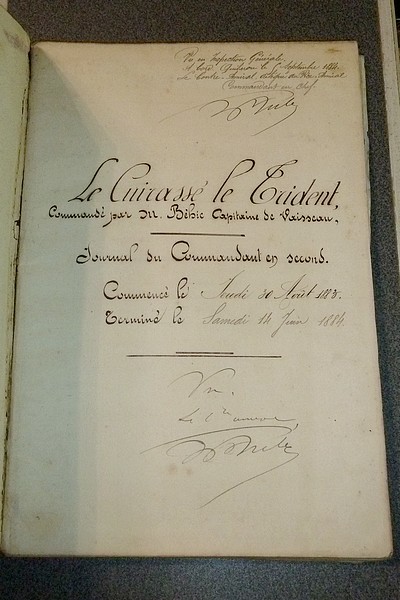 Vu en Inspection Générale
A bord, le 1er Septembre 1884
Le Contre-Amiral,
Commandant en chef
Le Cuirassé le Trident,
Commandé par M. Béhic Capitaine de Vaisseau,
Journal du Commandant en second.
Commencé le Jeudi 30 Août 1883.
Terminé le Samedi 14 Juin 1884.
Vu.
Le